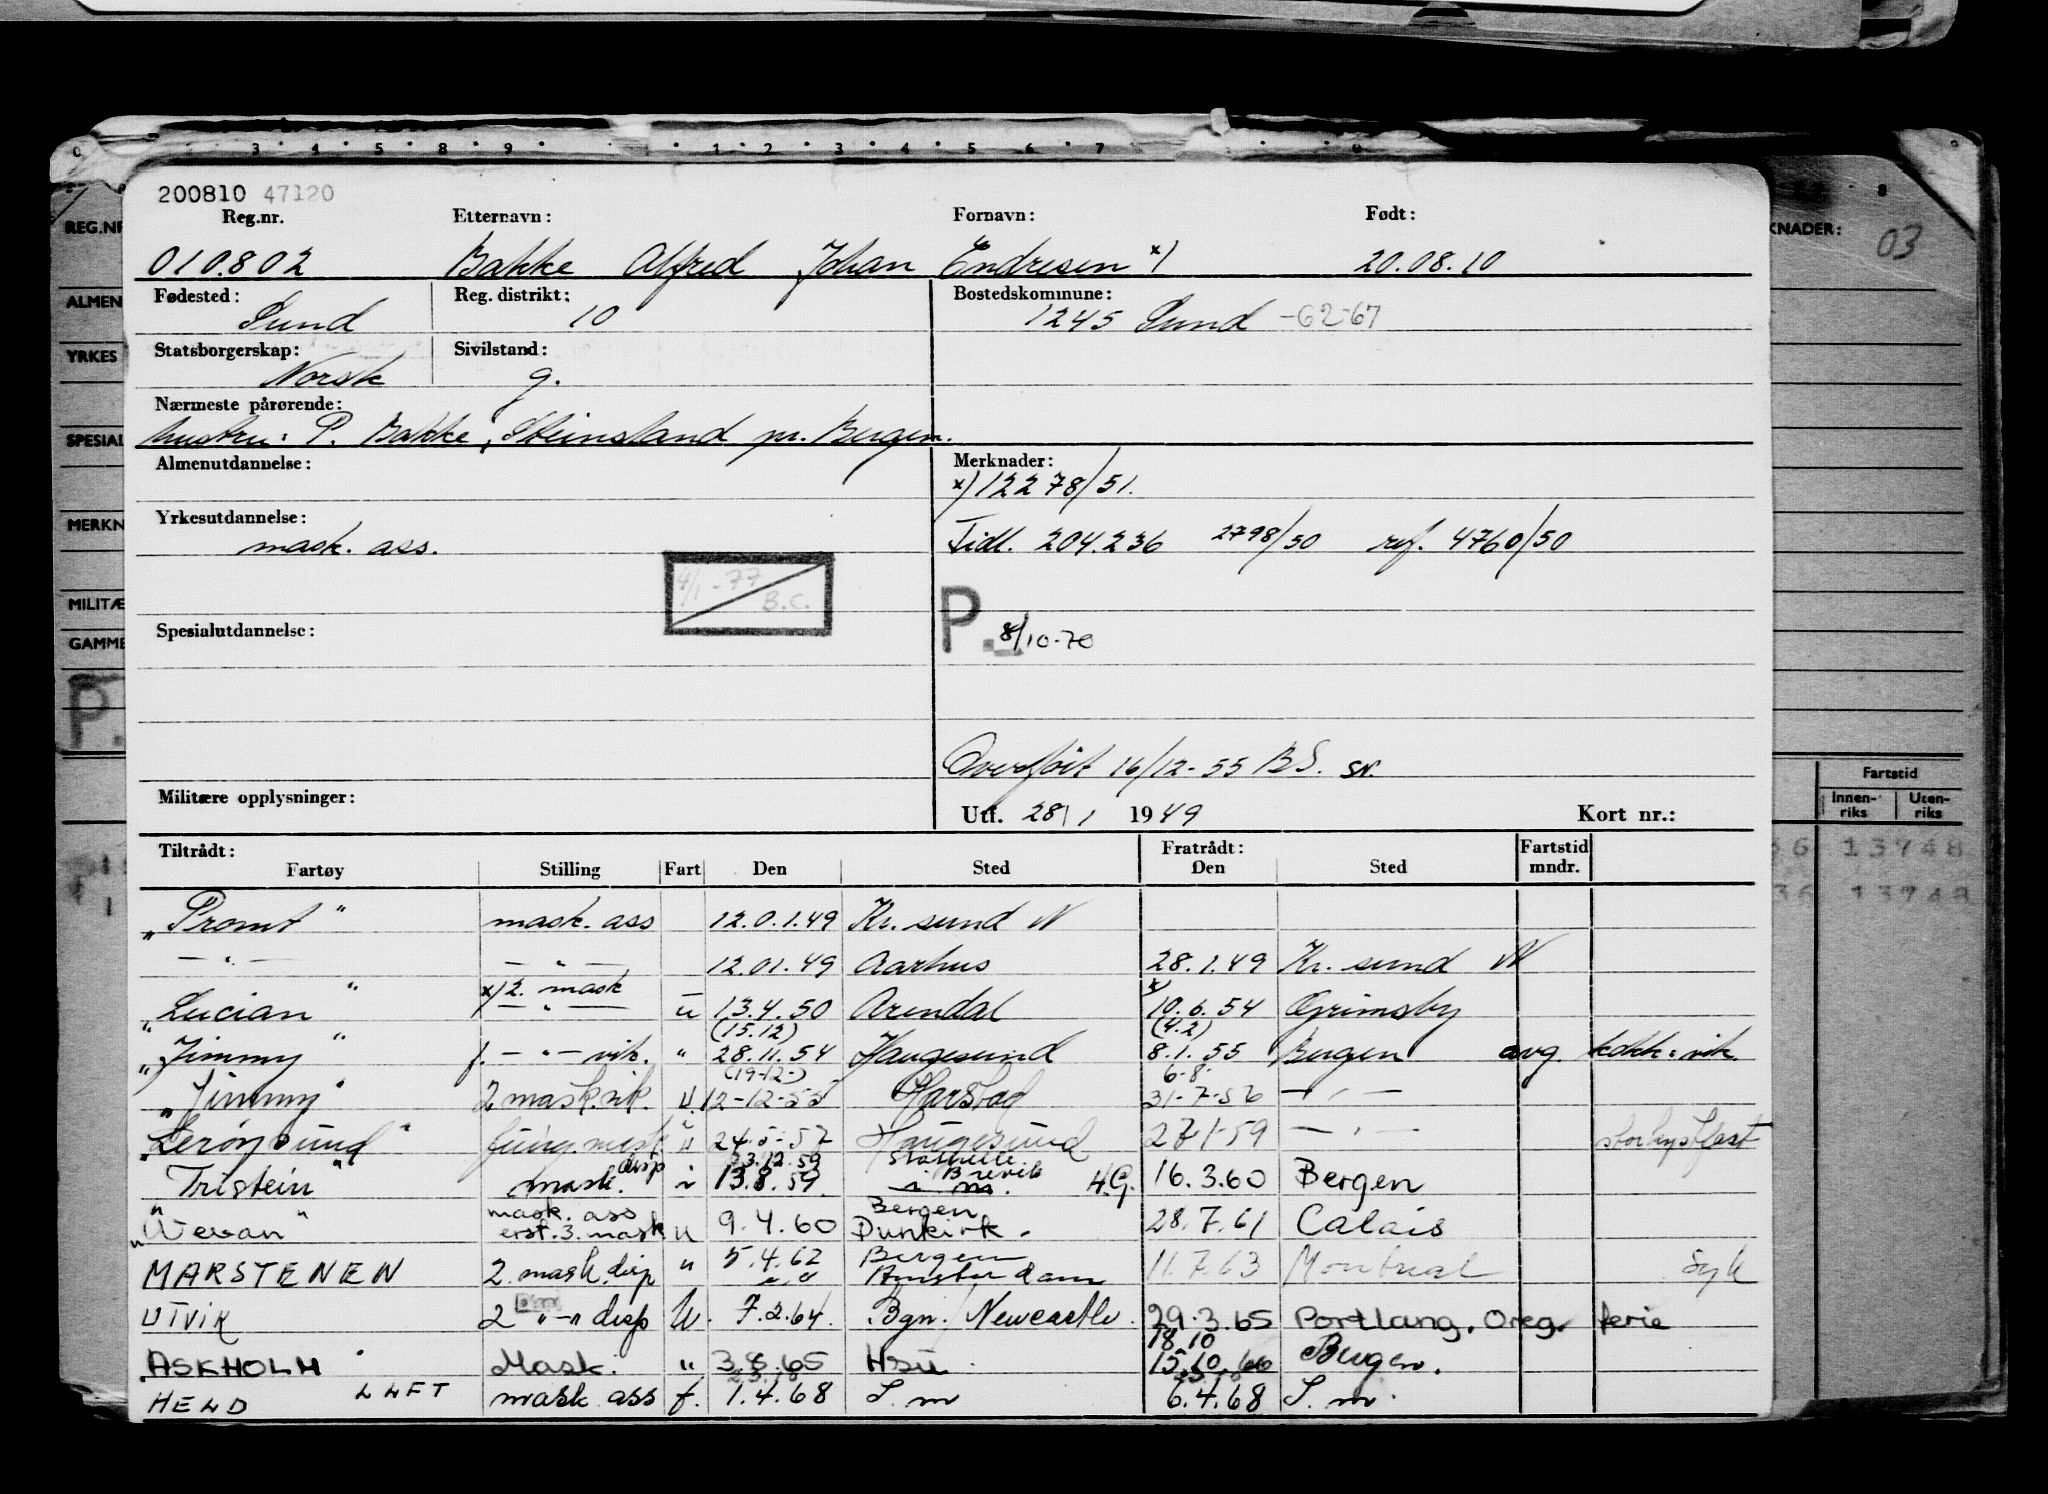 200810 47120
Reg.nr. Etternavn: Fornavn: Født:
010.802 Bakke Alfred Johan Endresen x) 20.08.10
Fødested: Reg. distrikt: Bostedskommune:
Sund 10 1245 Sund -62-67
Statsborgerskap: Sivilstand:
Norsk g.
Nærmeste pårørende:
hustru: P. Bakke, Steinsland pr. Bergen.
Almenutdannelse: Merknader:
x) 12278/51.
Yrkesutdannelse:
mask. ass. Tidl. 204.236 2798/50 ref. 4760/50
4/1-77 B.C.
Spesialutdannelse: P. 8/10-70
Overført 16/12-55 BS. sn.
Militære opplysninger: Utf. 28/1 1949 Kort nr.:
Tiltrådt: Fratrådt: Fartstid
Fartøy Stilling Fart Den Sted Den Sted mndr.
"Promt" mask. ass 12.0.1.49 Kr. sund N
— " — — " — 12.01.49 Aarhus 28.1.49 Kr. sund N
x) 2. mask x)
"Lucian" — " — u 13.4.50 Arendal 10.6.54 Grimsby
(15.12) (4.2)
"Jimmy" f. — " — vik. " 28.11.54 Haugesund 8.1.55 Bergen avg. kokk: vik.
(19-12-) 6-8-
"Jimmy" 2 mask.vik. U. 12-12-55 Harstad 31-7-56 — " —
"Lerøysund" fung. mask. u 24-5-57 Haugesund 27-1-59 — " —
disp 23.12.59 Stathelle
"Tristein" mask. i 13.8.59 Brevik H.G. 16.3.60 Bergen
mask. ass Bergen
"Wevan" erst. 3. mask u 9.4.60 Dunkirk. 28.7.61 Calais
MARSTENEN 2 mask. disp " 5.4.62 Bergen 11.7.63 Montreal Syk
Amsterdam
UTVIK 2 " — " disp U. 7.2.64. Bgn./Newcastle. 29.3.65 Portlang. Oreg. ferie
18.10
ASKHOLM Mask. " 3.8.65 Hsu. 15.10.66 Bergen.
HELD LHFT mask ass f. 1.4.68 S. m 6.4.68 S. m.
REG.NR
ALMEN
YRKES
SPESIAL
MERKN
MILITÆ
GAMME
P.
KNADER: 03
Fartstid
Innen-riks Uten-riks
36 13748
36 13748